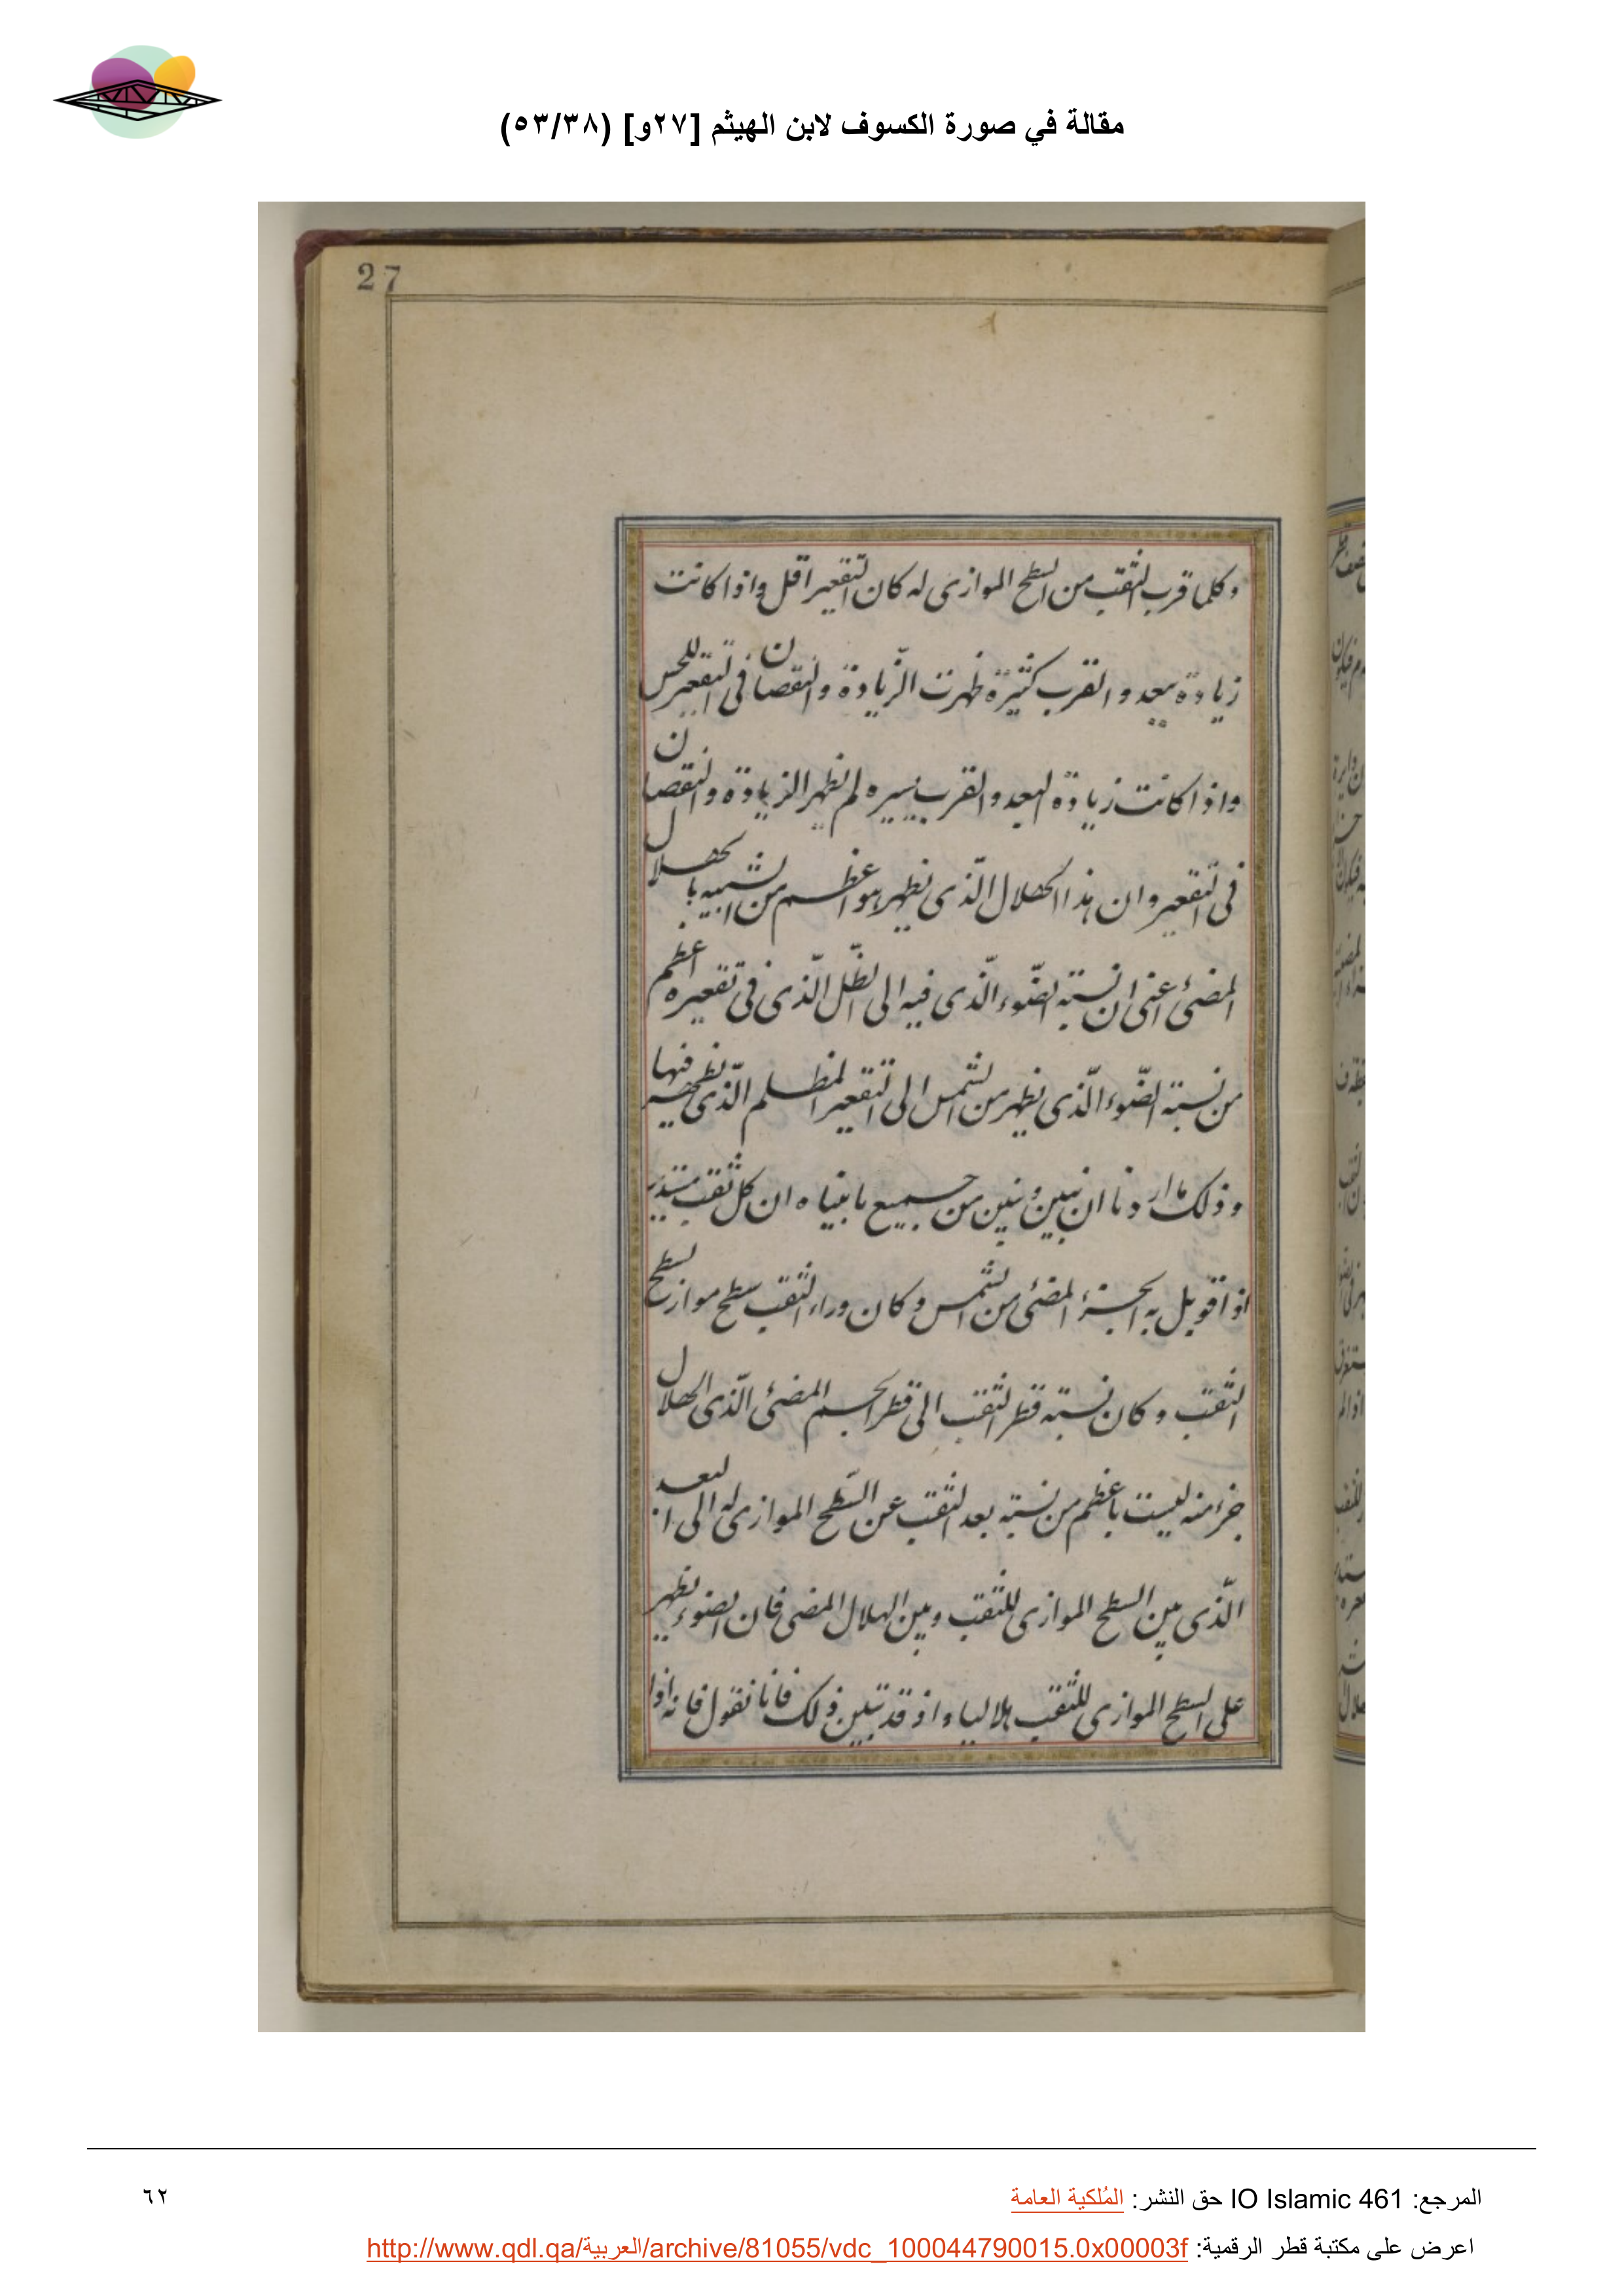 مقالة في صورة الكسوف لابن الهيثم [٢٧و] (٥٣/٣٨)
27
وكلما قرب الثقب من السطح الموازى له كان التقعير اقل واذا كانت
زيادة البعد والقرب كثيرة ظهرت الزّيادة والنقصان فى التقعير للحس
واذا كانت زيادة البعد والقرب يسيره لم يظهر الزيادة والنقصان
فى التقعير وان هذا الهلال الّذى يظهر هو اعظم من الشبيه بالهلال
المضئ اعنى ان نسبته الضّوء الّذى فيه الى الظّل الّذى فى تقعيره اعظم
من نسبته الضّوء الّذى يظهر من الشمس الى التقعير المظلم الّذى يظهر فيها
وذلك ما اردنا ان نبين ونبين من جميع ما بيناه ان كل ثقب مستدير
اذا قوبل به الجزء المضئ من الشمس وكان وراء الثقب سطح مواز لسطح
الثقب وكان نسبته قطر الثقب الى قطر الجسم المضئ الّذى الهلال
جزء منه ليست باعظم من نسبته بعد الثقب عن السّطح الموازى له الى البعد
الّذى بين السطح الموازى للثقب وبين الهلال المضى فان الضوء يظهر
على السطح الموازى للثقب هلاليا واذ قد تبين ذلك فانا نقول فانه اذا
المرجع: IO Islamic 461 حق النشر: المُلكية العامة
٦٢
اعرض على مكتبة قطر الرقمية: http://www.qdl.qa/العربية/archive/81055/vdc_100044790015.0x00003f